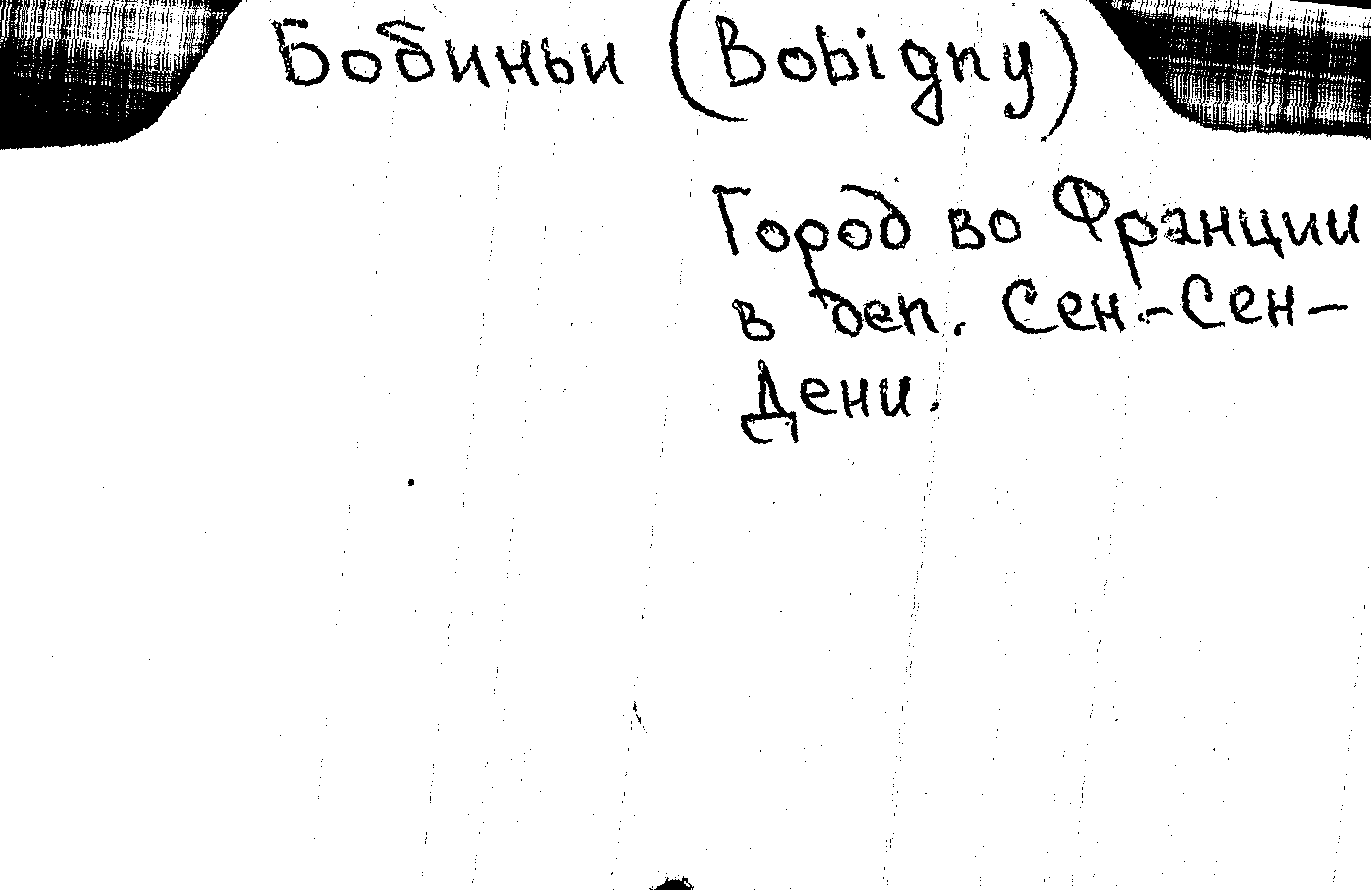 Бобиньи (Bobigny)
Город во Франции
в деп. Сен-Сен-
Дени.